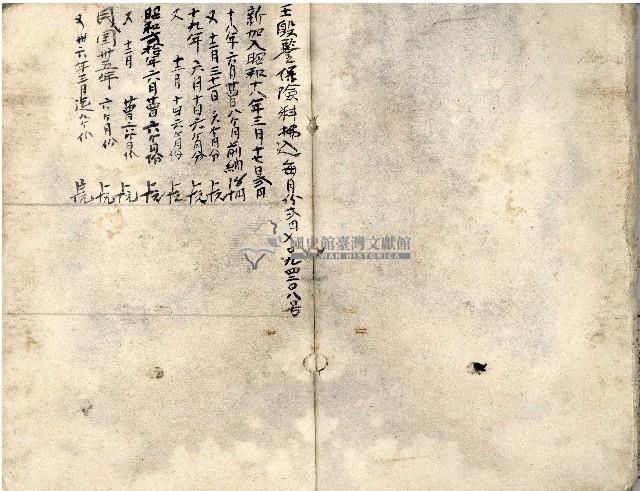 王殿鑒保險料拂込每月份弍円又〇九四二〇八号
新加入昭和十八年三月十七日弍円
十八年六月廿日八ケ月前納
又十二月三十一日六ケ月分
十九年六月十日六ケ月分
又十二月十日六ケ月分
昭和弍拾年六月廿日六ケ月份
又十二月廿日六ケ月份
民國卅五年六ケ月份
又卅六年三月迄九ケ份
國史館臺灣文獻館
TAIWAN HISTORICA